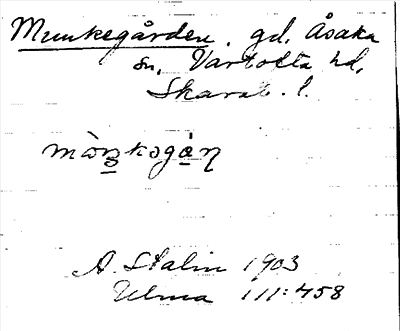 Munkegården. gd. Åsaka
sn, Vartofta hd,
Skarab. l.
A. Stalin 1903
Ulma 111:458